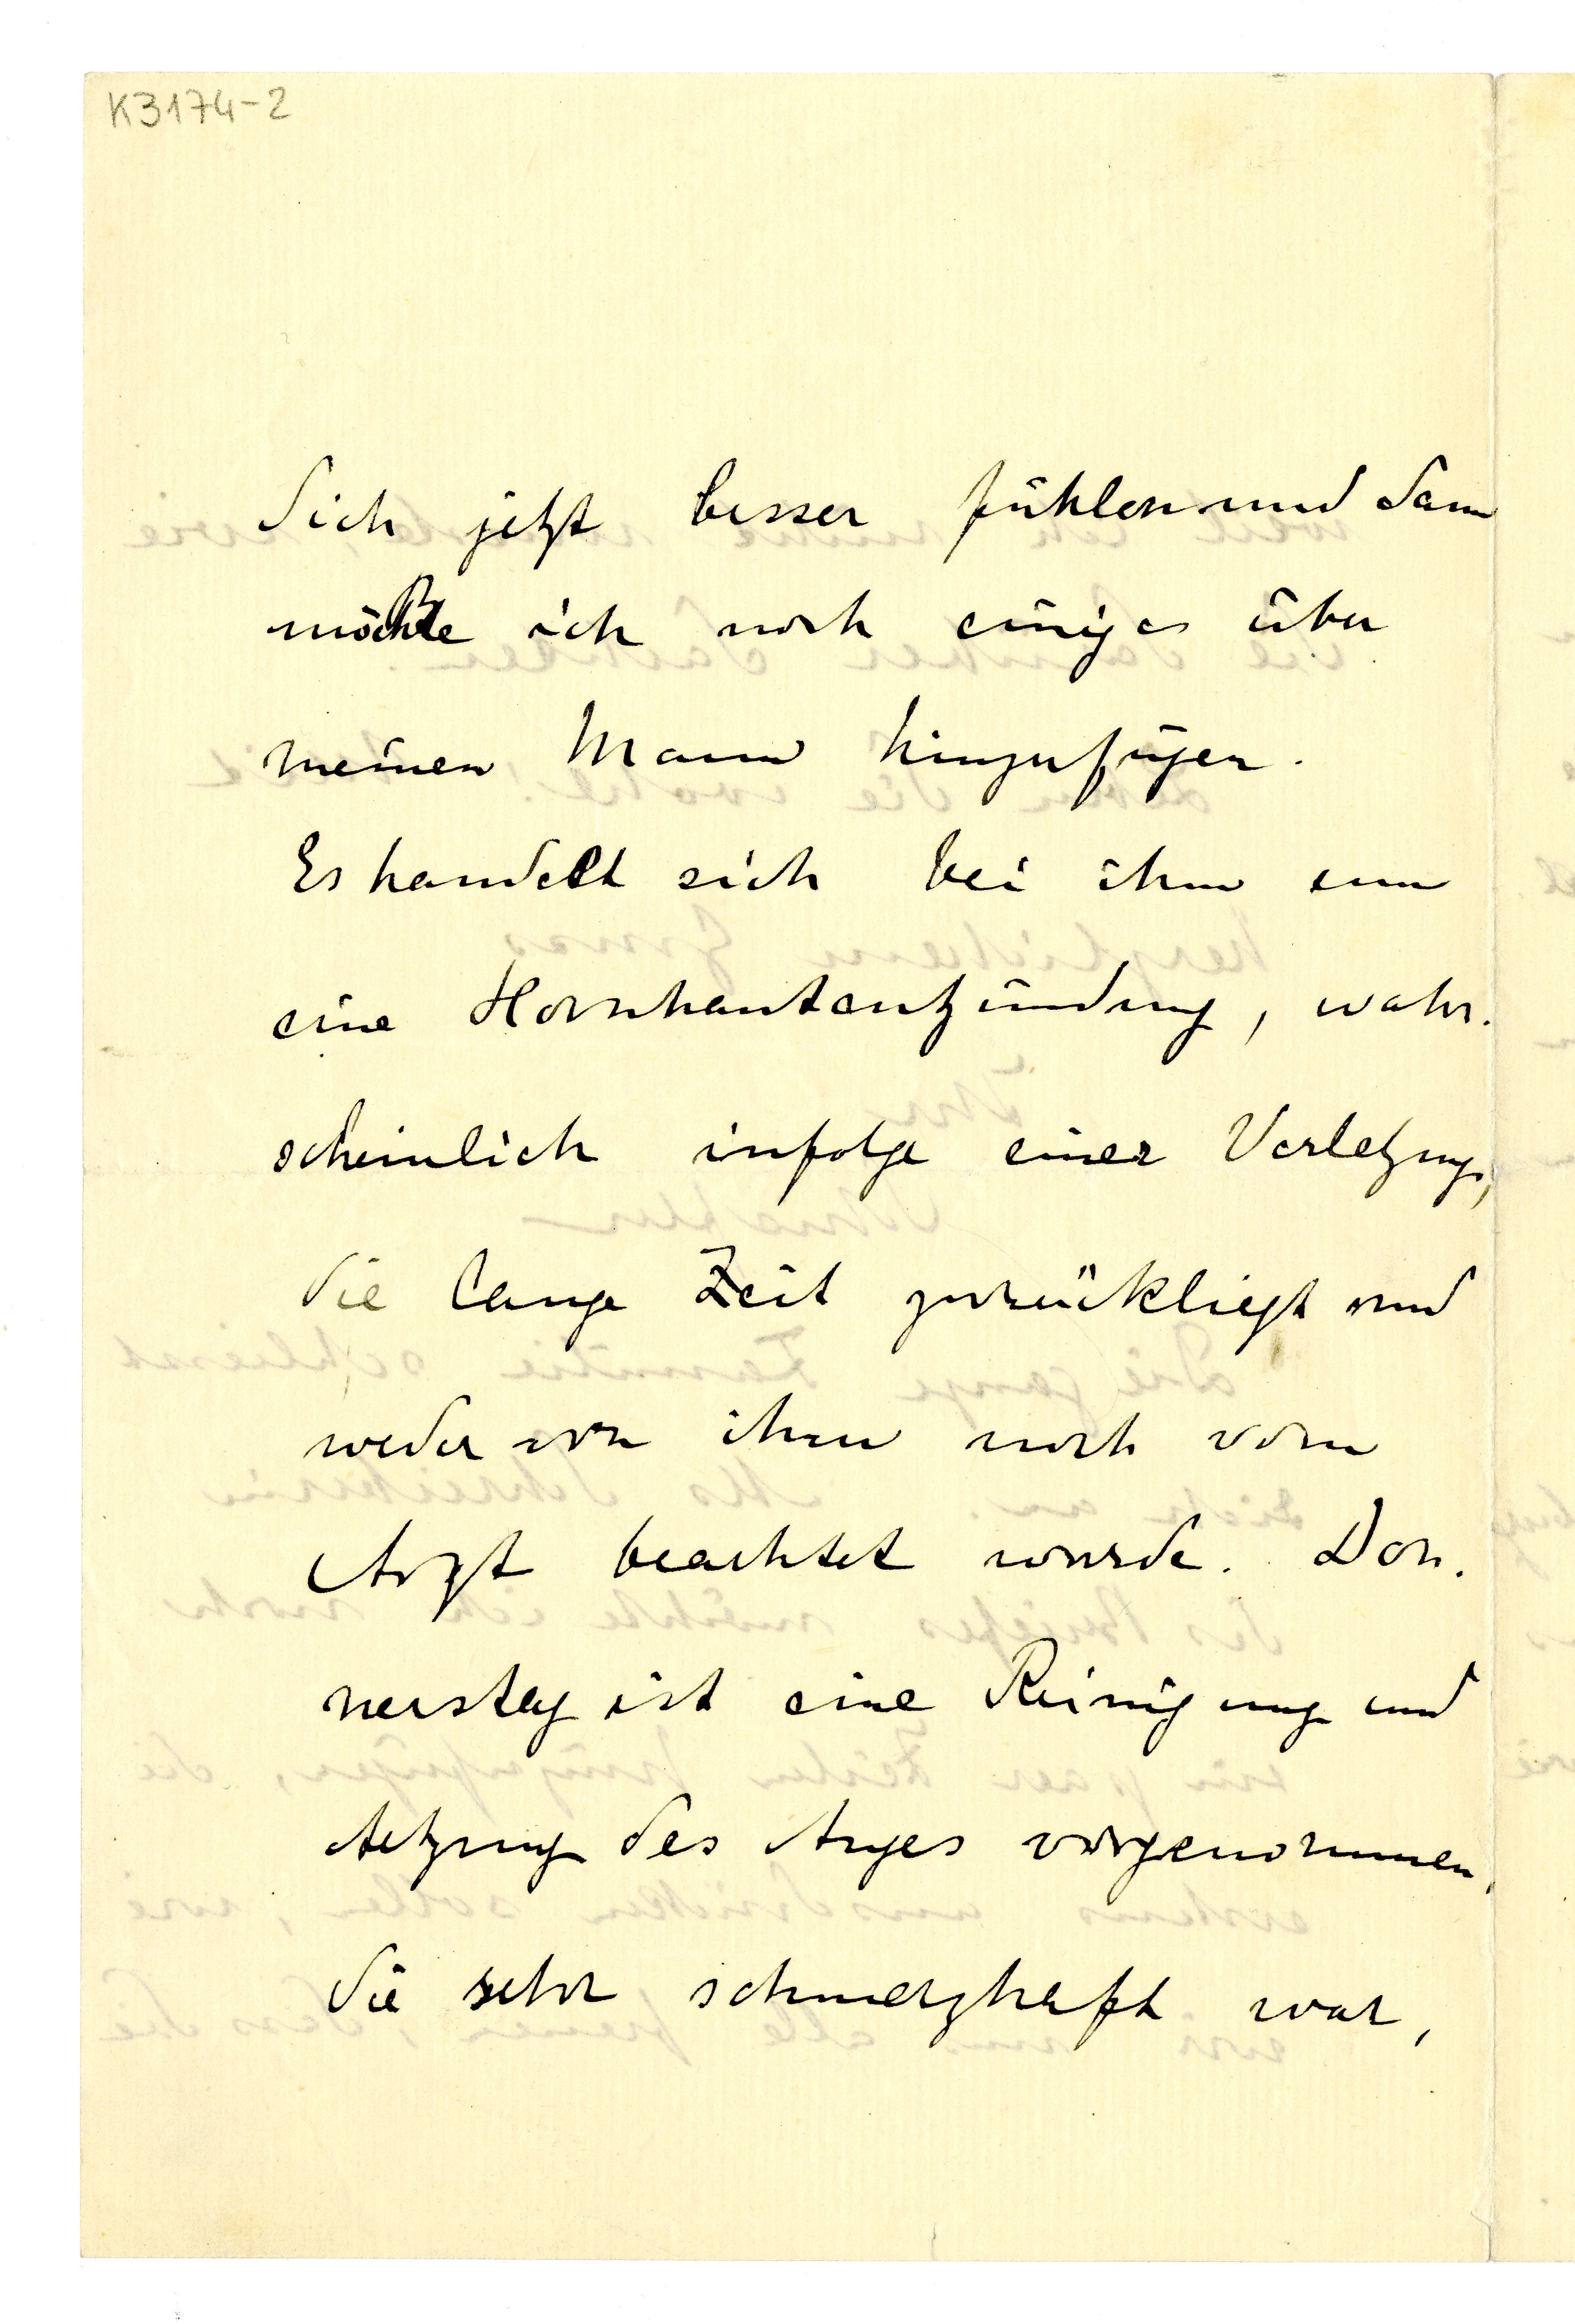 K3174-2
Sich jetzt besser fühlen und dann
möchte ich noch einiges über
meinen Mann hinzufügen.
Es handelt sich bei ihm um
eine Hornhautentzündung, wahr-
scheinlich infolge einer Verletzung,
die lange Zeit zurückliegt und
weder von ihm noch vom
Arzt beachtet wurde. Don-
nerstag ist eine Reinigung und
Aetzung des Auges vorgenommen,
die sehr schmerzhaft war,